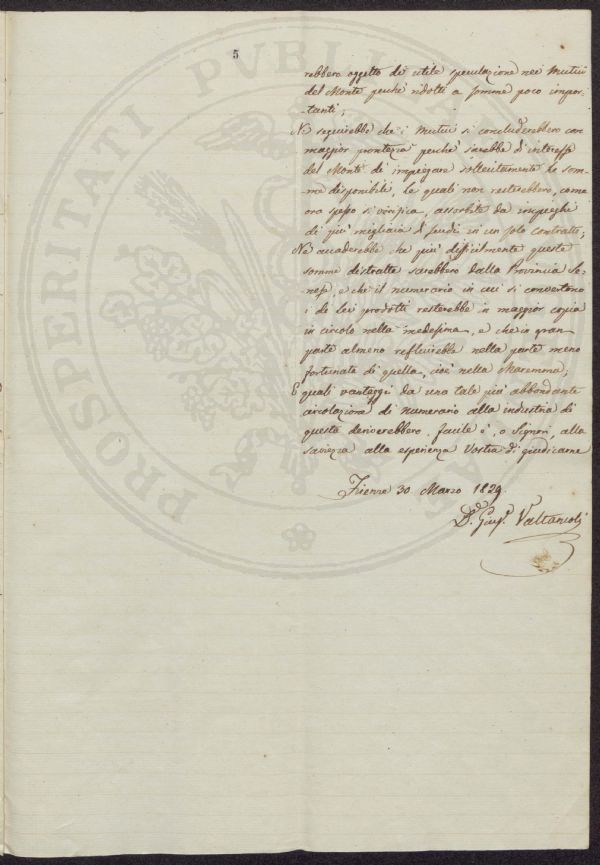 5
rebbero oggetto di utile speculazione nei Mutui
del Monte perchè ridotti a somme poco impor-
-tanti;
Ne seguirebbe che i Mutui si concluderebbero con
maggior prontezza perchè sarebbe d'interesse
del Monte di impiegare sollecitamente le som-
me disponibili, le quali non resterebbero, come
ora spesso si verifica, assorbite da impieghi
di più migliaia di scudi in un solo contratto;
Ne accaderebbe che più difficilmente queste
somme distratte sarebbero dalla Provincia Se-
nese, e che il numerario in cui si convertono
i di Lei prodotti resterebbe in maggior copia
in circolo nella medesima, e che in gran
parte almeno refluirebbe nella parte meno
fortunata di quella, cioè nella Maremma;
E quali vantaggi da una tale più abbondante
circolazione di numerario alla industria di
questa deriverebbero, facile è, o Signori, alla
saviezza alla esperienza Vostra di giudicarne
Firenze 30 Marzo 1829.
D. Gius. Valtancoli
PROSPERITATI PVBLICAE